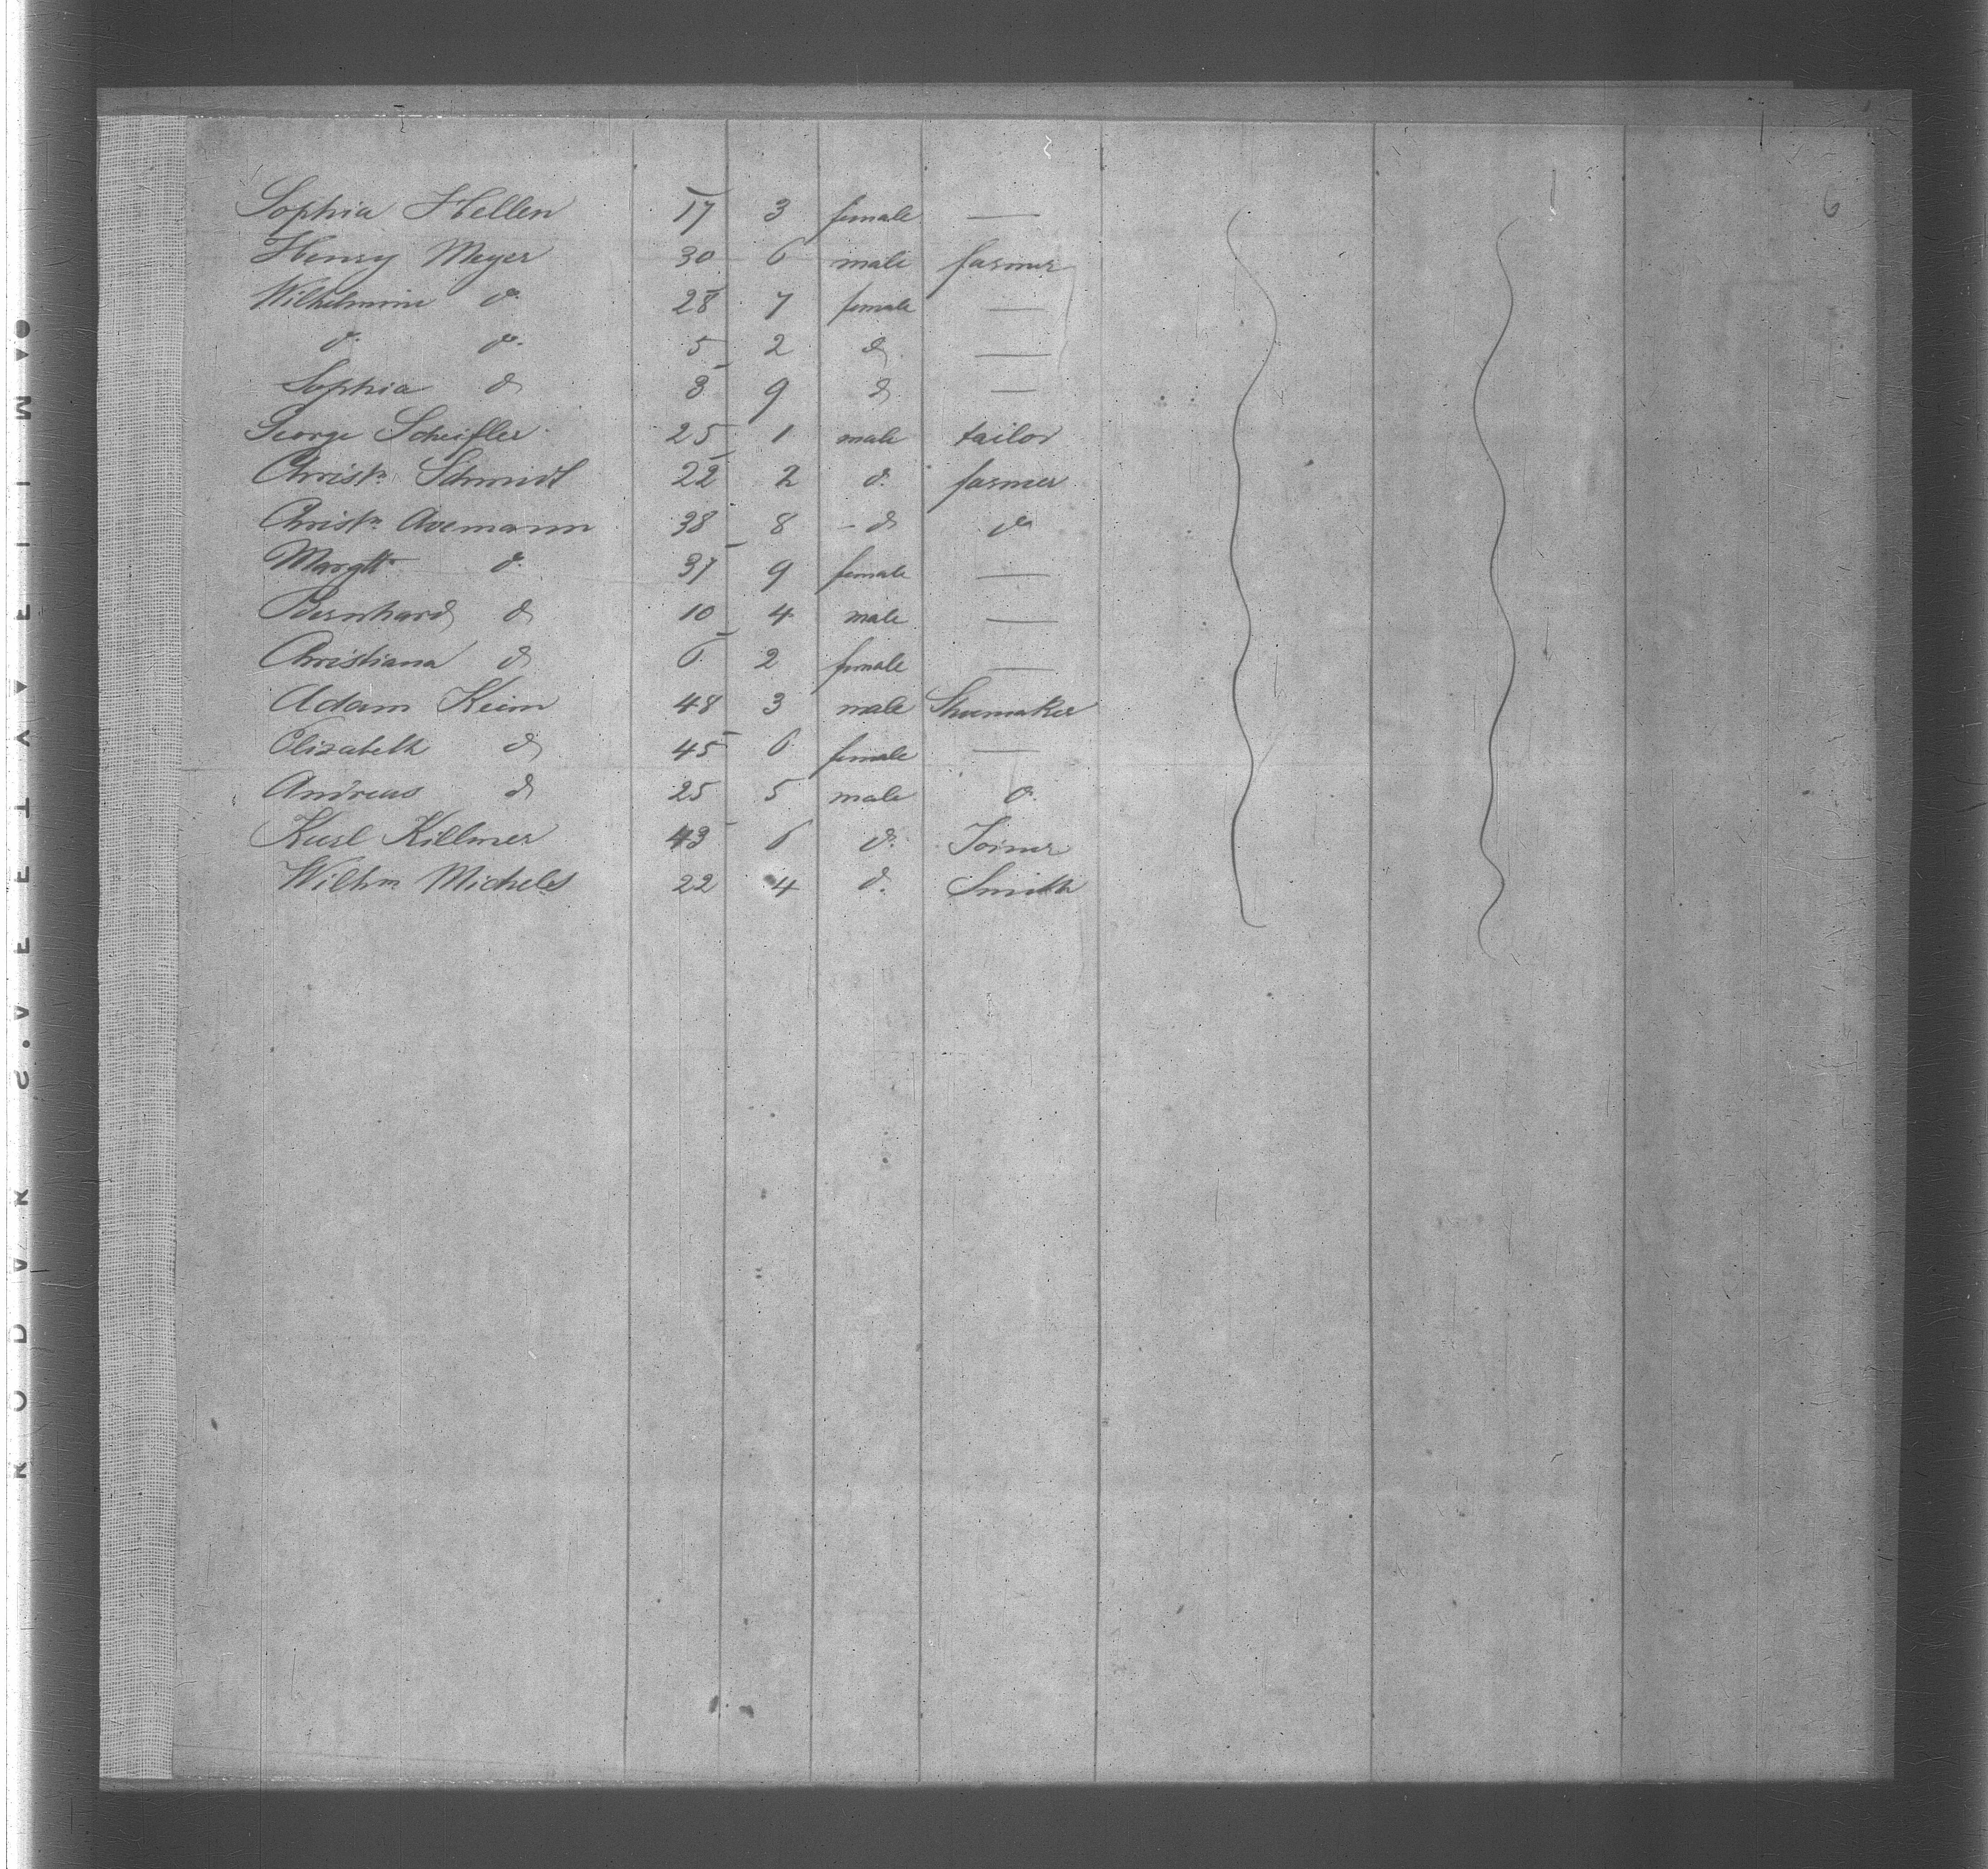 6
Sophia Hellen 17 3 female —
Henry Meyer 30 6 male farmer
Wilhelmine do. 28 7 female —
do. do. 5 2 do —
Sophia do 3 9 do —
George Scheifler 25 1 male tailor
Christn. Schmidt 22 2 do. farmer
Christn. Avemann 38 8 - do do
Margtt. do. 37 9 female —
Bernhard do 10 4 male —
Christiana do 6 2 female —
Adam Keim 48 3 male Shumaker
Elizabeth do 45 6 female —
Andreas do 25 5 male do.
Karl Killmer 43 6 do. Joiner
Wilhm Michels 22 4 do. Smith